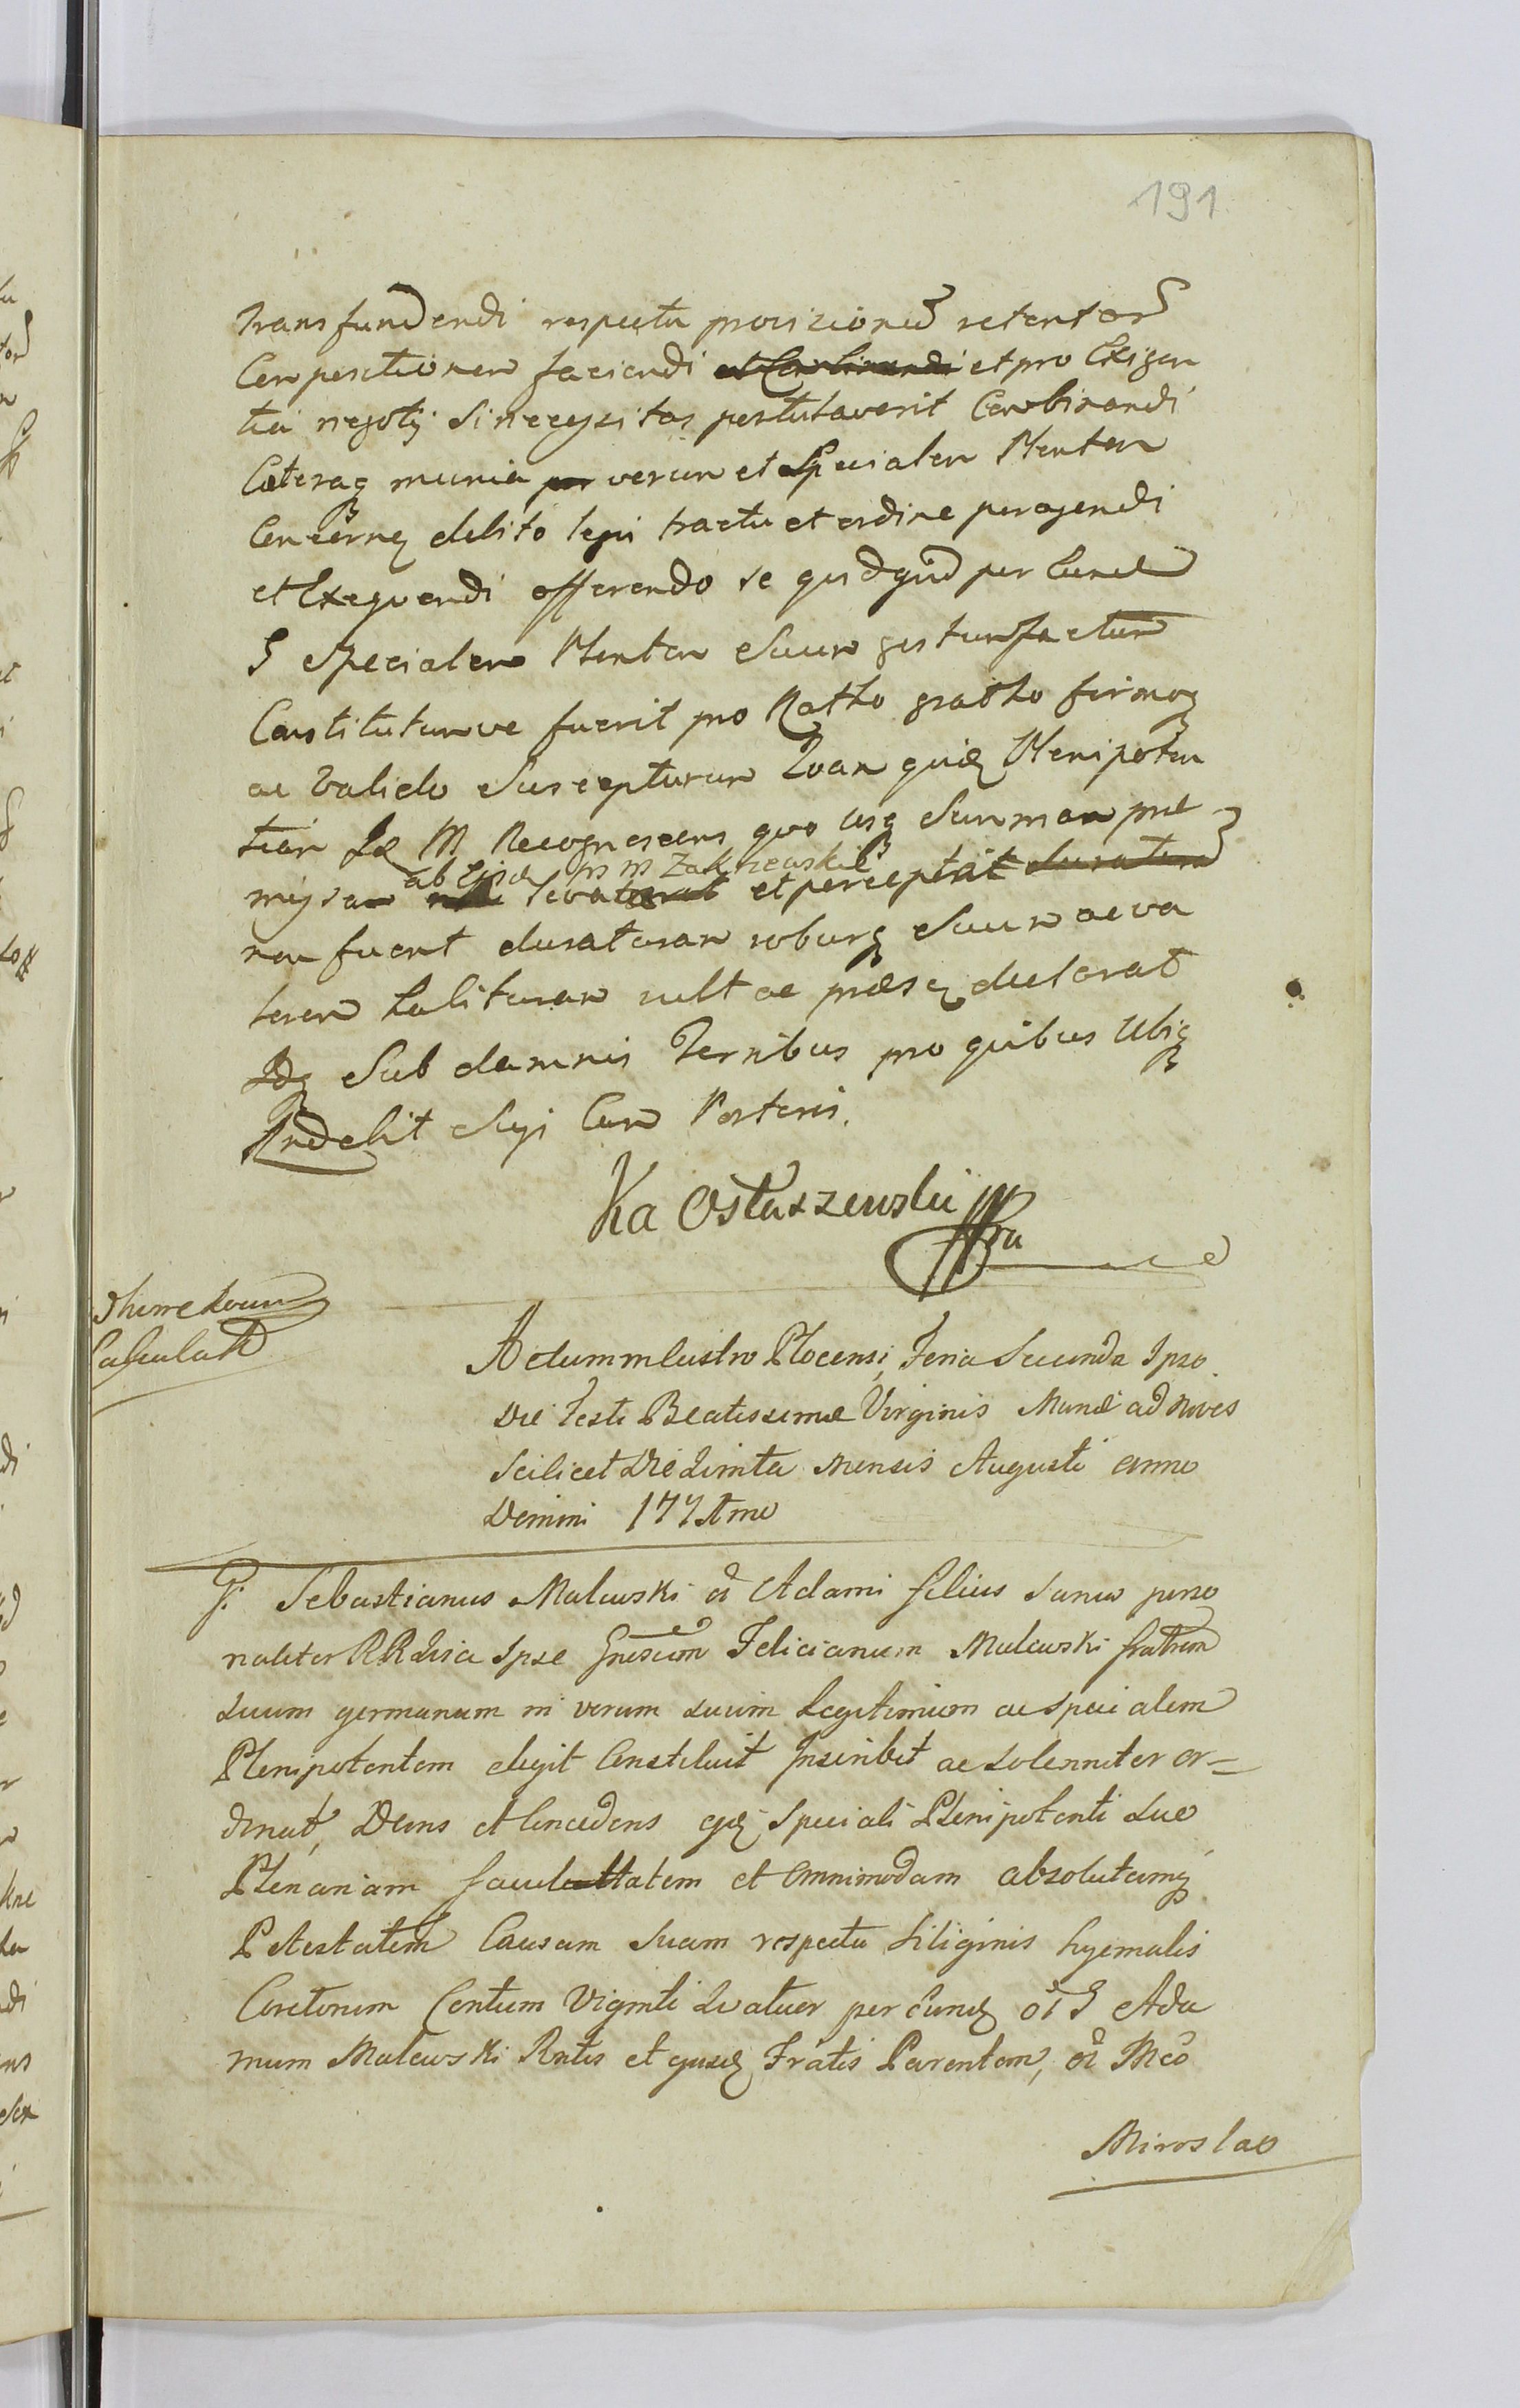 191
transfundendi respectu provisionũ retentarũ
Compositionem faciendi et pro Exigen
tia negotij si necessitas postulaverit Combinandi
Cæteraq munia verum et Specialem Plenten
Concernen debito legi tractu et ordine peragendi
et Exequendi offerendo se quidquid per eund
S Specialem Plenten Suum gestum factum
Constitutumve fuerit pro Ratho gratho firmoq
ac Valido Suscepturum Quam quid Plenipoten
tiam Recognoscens quo usq Summam præ
missam ab Ejsd M Zakrzewski levat et perceperit
non fuerit duraturam roburq Suum ac va
lorem habituram vult ac præsen declarat
Idq Sub damnis Ternibus pro quibus Ubiq
Rndebit Sepi Cum Posteris.
Ka Ostaszewski mpa
Actum in Castro Plocensi, Feria Secunda Ipso
Die Festi Beatissimæ Virginis Mariæ ad Nives
Scilicet Die Quinta Mensis Augusti Anno
Domini 177
G. Sebastianus Malewski ol Adami filius Sanus perso
naliter Ipse Gnosum Felicianum Malewski fratrem
suum germanum in verum suum Legitimum ac specialem
Plenipotentem elegit Constituit Inscribit ac solenniter or=
dinat, Dans et Concedens ejd Speciali Plenipotenti suo
Plenariam facultatem et Omnimodam absolutamq
Potestatem Causam Suam respectu Siliginis hyemalis
Coretorum Centum Viginti Quatuor per eund ol G Ada
mum Malewski Rntis et ejusd Fratis Parentem, ol Mco
Miroslao